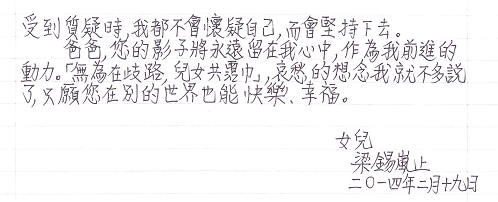 受到質疑時,我都不會懷疑自己,而會堅持下去。
爸爸,您的影子將永遠留在我心中,作為我前進的
動力。「無為在歧路,兒女共霑巾」,哀愁的想念我就不多說
了,只願您在別的世界也能快樂、幸福。
女兒
梁錫嵐止
二〇一四年二月十九日